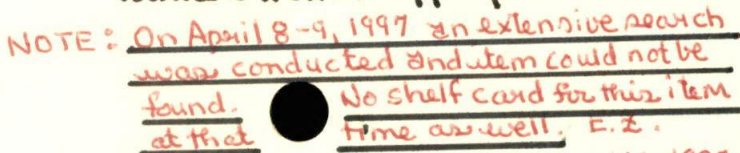 NOTE: On April 8-9, 1997 an extensive search
was conducted and item could not be
found. No shelf card for this item
at that time as well. E.Z.